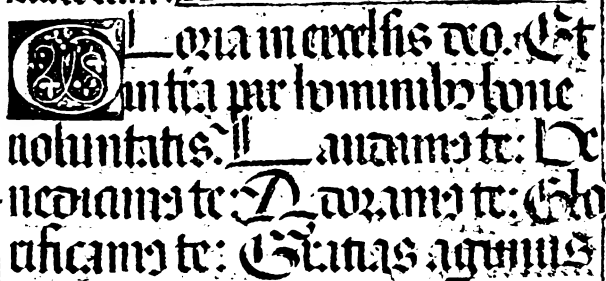 Gloria in excelsis deo. Et
in tr̄a pax hominibꝰ bone
voluntatis. Laudamꝰ te: Be
nedicimꝰ te: Adoramꝰ te: Glo
rificamꝰ te: Gratias agimus